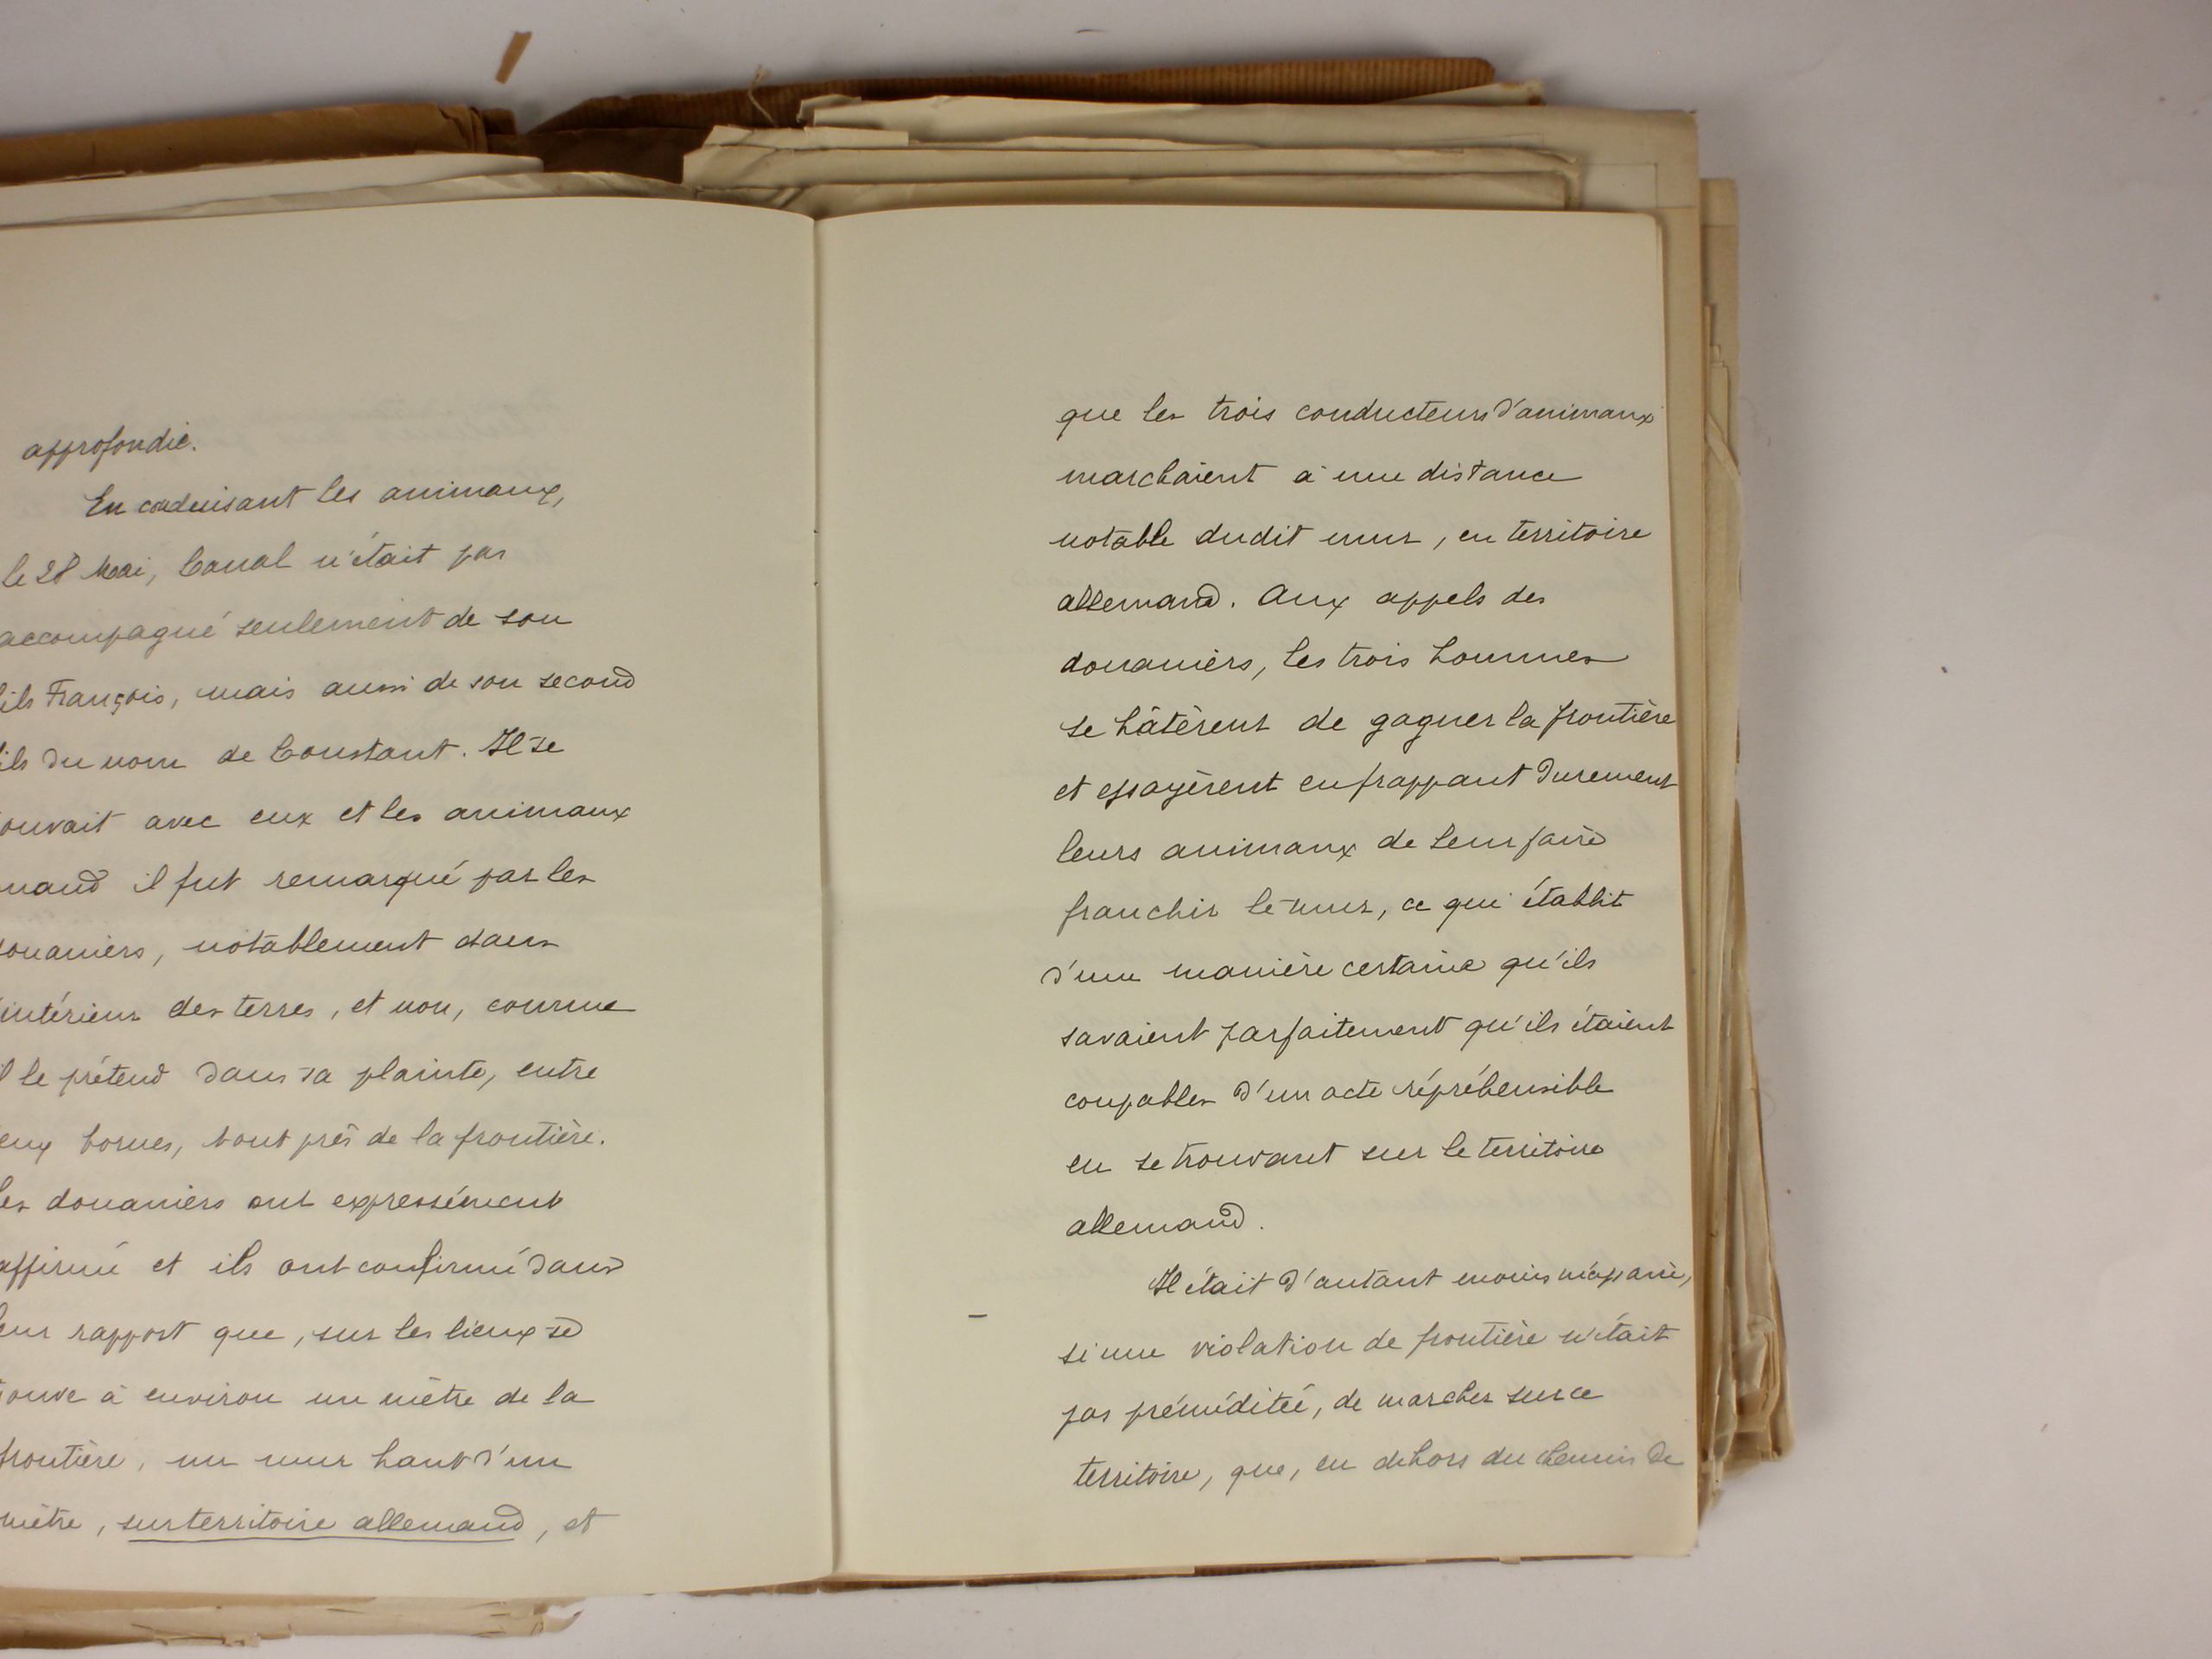 approfondie.
En conduisant les animaux,
le 28 Mai, Canal n'était pas
accompagné seulement de son
ils François, mais aussi de son second
ils du nom de Constant. Il se
ouvait avec eux et les animaux
uand il fut remarqué par les
ouaniers, notablement dans
intérieur des terres, et non, comme
il le prétend dans sa plainte, entre
eux bornes, tout près de la frontière.
Les douaniers ont expressément
affirmé et ils ont confirmé dans
eur rapport que, sur les lieux se
rouve à environ un mètre de la
frontière, un mur haut d'un
mètre, sur territoire allemand, et
que les trois conducteurs d'animaux
marchaient à une distance
notable dudit mur, en territoire
allemand. Aux appels des
douaniers, les trois hommes
se hâtèrent de gagner la frontière
et essayèrent en frappant durement
leurs animaux de leur faire
franchir le mur, ce qui établit
d'une manière certaine qu'ils
savaient parfaitement qu'ils étaient
coupables d'un acte répréhensible
en se trouvant sur le territoire
allemand.
Il était d'autant moins
si une violation de frontière n'était
pas préméditée, de marcher sur ce
territoire, que, en dehors du chemin de